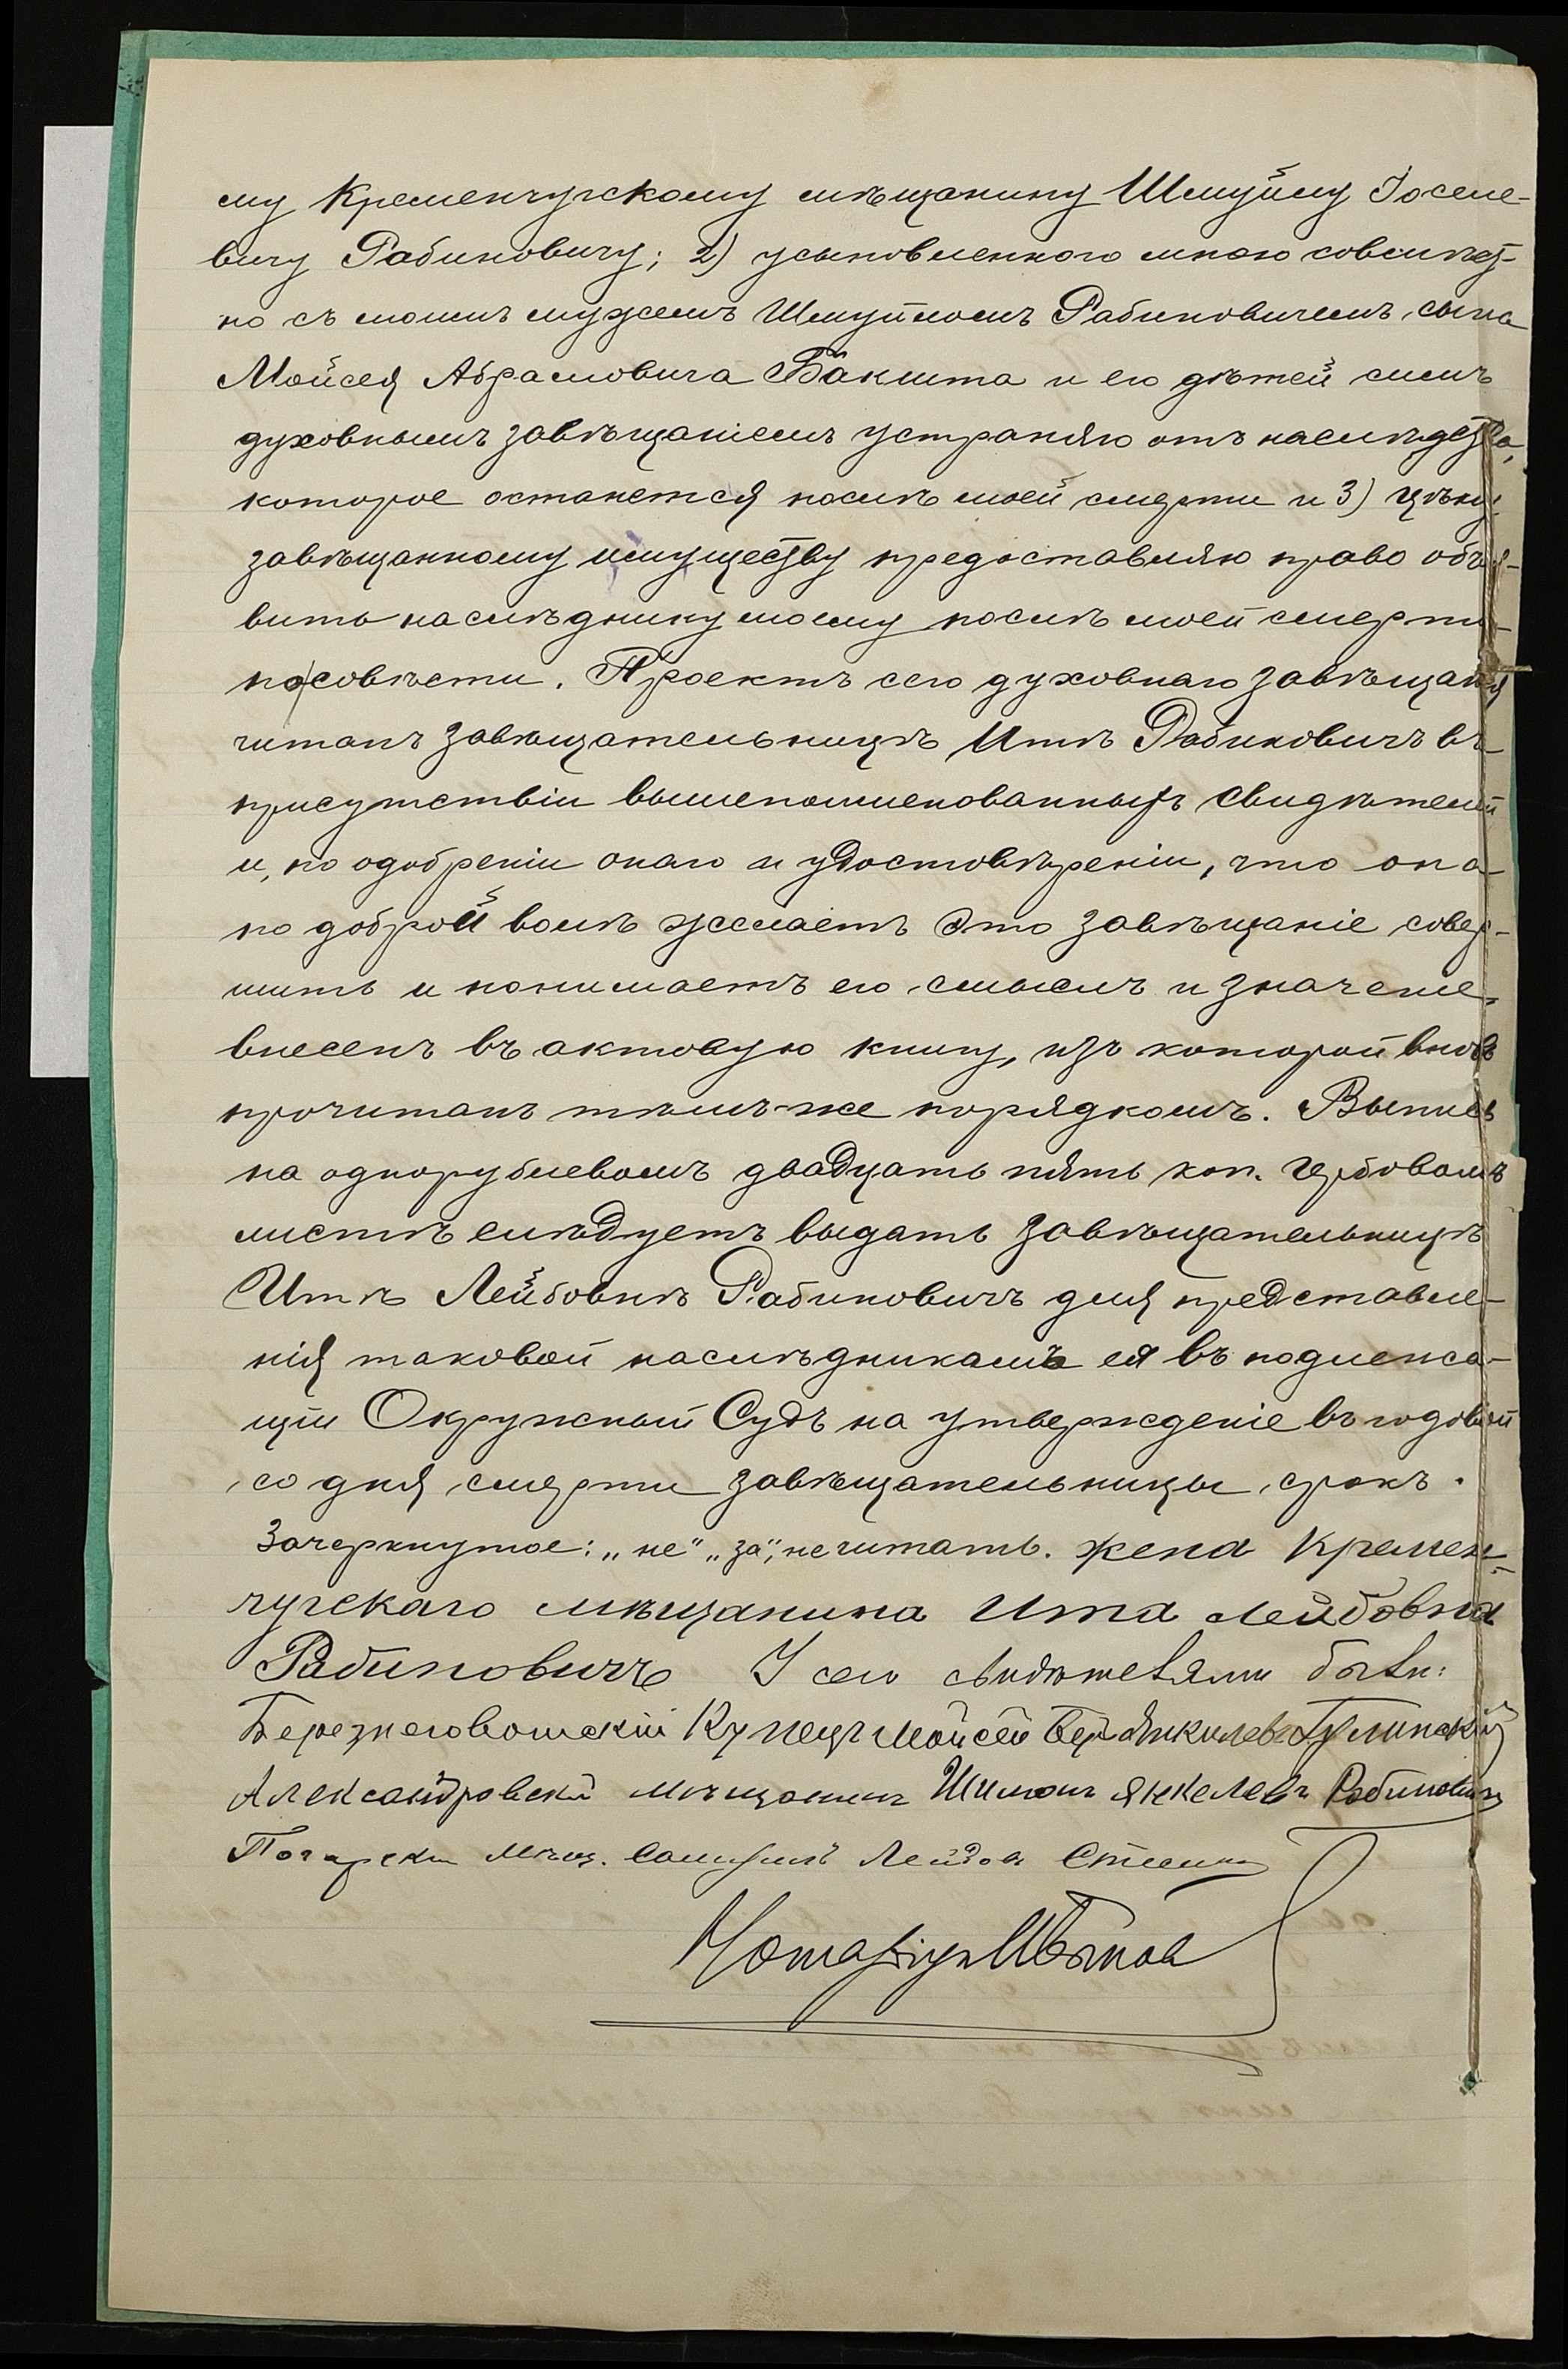 му Кременчугскому мѣщанину Шмуйлу Іоселе-
вичу Рабиновичу; 2) усыновленного мною совмѣст-
но съ моимъ мужемъ Шмуйломъ Рабиновичемъ, сына
Мойсея Абрамовича Бакшта и его дѣтей симъ
духовнымъ завѣщаніемъ устраняю отъ наслѣдства,
которое останется послѣ моей смерти и 3) цѣну
завѣщанному имуществу предоставляю право объя-
вить наслѣднику моему послѣ моей смерти
по совѣсти. Проектъ сего духовнаго завѣщанія
читанъ завѣщательницѣ Итѣ Рабиновичъ въ
присутствіи вышепоименованныхъ свидѣтелей
и, по одобреніи онаго и удостовѣреніи, что она
по доброй волѣ желаетъ это завѣщаніе совер-
шить и понимаетъ его смыслъ и значеніе,
внесенъ въ актовую книгу, изъ которой вновь
прочитанъ тѣмъ-же порядкомъ. Выпись
на однорублевомъ двадцать пять коп. гербовомъ
листѣ слѣдуетъ выдать завѣщательницѣ
Итѣ Лейбовнѣ Рабиновичъ для представле-
нія таковой наслѣдникамъ ея въ подлежа-
щій Окружный Судъ на утвержденіе въ годовой
со дня смерти завѣщательницы срокъ.
Зачеркнутое: „не" „за", не читать. Жена Кремен-
чугскаго мѣщанина Ита Лейбовна
Рабиновичъ У сего свидѣтелями были:
Березнеговатскій Купецъ Мойсей Бер Янкилевъ Гулинскій
Александровскій мѣщанинъ Шимонъ Янкелевъ Рабиновичъ
мѣщ. Самуилъ Лейбов
Нотаріусъ